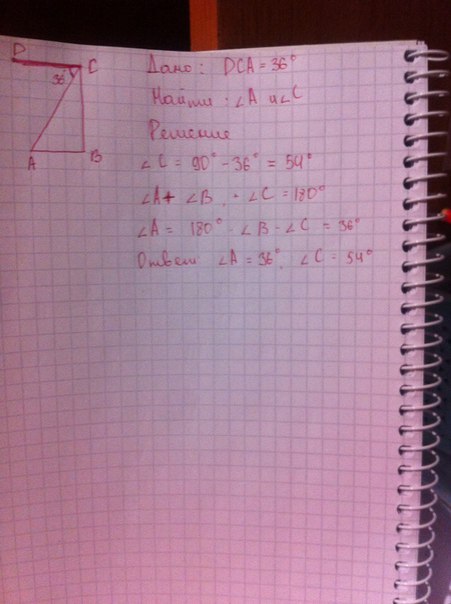 D
C
36°
A
B
Дано: DCA = 36°
Найти: ∠A и ∠C
Решение
∠C = 90° - 36° = 54°
∠A + ∠B + ∠C = 180°
∠A = 180° - ∠B - ∠C = 36°
Ответ ∠A = 36°, ∠C = 54°